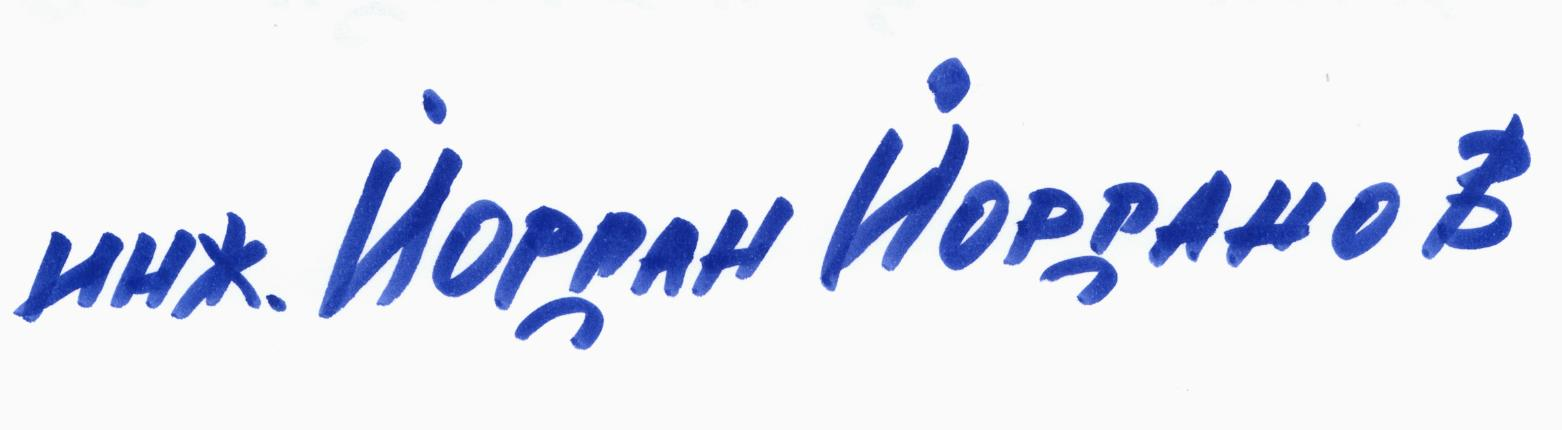 инж. Йордан Йорданов